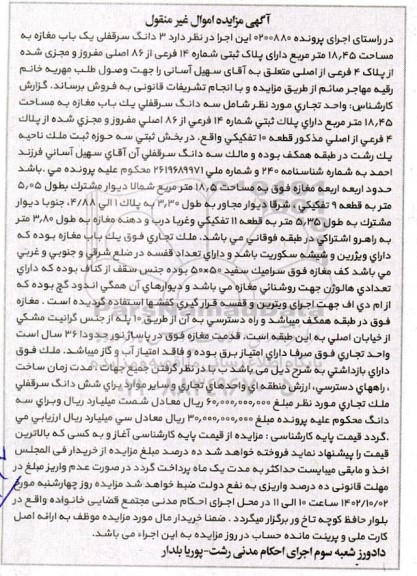 آگهی مزایده اموال غیر منقول
در راستای اجرای پرونده ۰۲۰۰۸۸۰ این اجرا در نظر دارد ۳ دانگ سرقفلی یک باب مغازه به
مساحت ۱۸,۴۵ متر مربع دارای پلاک ثبتی شماره ۱۴ فرعی از ۸۶ اصلی مفروز و مجزی شده
از پلاک ۴ فرعی از اصلی متعلق به آقای سهیل آسانی را جهت وصول طلب مهریه خانم
رقیه مهاجر صانع از طریق مزایده و با انجام تشریفات قانونی به فروش برساند. گزارش
کارشناس: واحد تجاري مورد نظر شامل سه دانگ سرقفلي يك باب مغازه به مساحت
۱۸,۴۵ متر مربع داراي پلاك ثبتي شماره ۱۴ فرعي از ۸۶ اصلي مفروز و مجزي شده از پلاك
۴ فرعي از اصلي مذكور قطعه ۱۰ تفكيكي واقع، در بخش ثبتي سه حوزه ثبت ملك ناحيه
يك رشت در طبقه همكف بوده و مالك سه دانگ سرقفلي آن آقاي سهيل آساني فرزند
احمد به شماره شناسنامه ۲۴۰ و شماره ملي ۲۶۱۹۶۸۹۹۷۱ محكوم عليه پرونده مي .باشد
حدود اربعه اربعه مغازه فوق به مساحت ۱۸٫۵ متر مربع شمالا ديوار مشترك بطول ۵,۰۵
متر به قطعه ۹ تفكيكي، شرقا ديوار مجاور به طول ۳,۳۰ به پلاك ۱ الي ۴/۸۸، جنوبا ديوار
مشترك به طول ۵,۳۵ متر به قطعه ۱۱ تفكيكي وغربا درب و دهنه مغازه به طول ۳,۸۰ متر
به راهرو اشتراكي در طبقه فوقاني مي باشد. ملك تجاري فوق يك باب مغازه بوده كه
داراي ويژرين و شيشه سكوريت باشد و داراي تعداد قفسه در ضلع شرقي و جنوبي و غربي
مي باشد كف مغازه فوق سراميك سفيد ۵۰×۵۰ بوده جنس سقف از كناف بوده كه داراي
تعدادي هالوژن جهت روشنائي مغازه مي باشد و ديوارهاي آن همگي اندود گچ بوده كه
از ام دي اف جهت اجراي ويترين و قفسه قرار گيري كفشها استفاده گرديده است . مغازه
فوق در طبقه همكف ميباشد و راه دسترسي به آن از طريق ۱۰ پله از جنس گرانيت مشكي
از خيابان اصلي به اين طبقه است، قدمت مغازه فوق در پاساژ نور حدودا ۳۶ سال است
واحد تجاري فوق صرفا داراي امتياز برق بوده و فاقد امتياز آب و گاز ميباشد. ملك فوق
داراي بازداشتي به شرح ذيل مي باشد ب با در نظر گرفتن جميع جهات مدت زمان ساخت
، راههاي دسترسي، ارزش منطقه اي واحدهاي تجاري و ساير موارد براي شش دانگ سرقفلي
ملك تجاري مورد نظر مبلغ ۶۰,۰۰۰,۰۰۰,۰۰۰ ريال معادل شصت ميليارد ريال وبراي سه
دانگ محكوم عليه پرونده مبلغ ۳۰,۰۰۰,۰۰۰,۰۰۰ ريال معادل سي ميليارد ريال ارزيابي مي
.گردد قيمت پايه كارشناسي : مزايده از قيمت پايه كارشناسي آغاز و به كسي كه بالاترين
قيمت را پيشنهاد نمايد فروخته خواهد شد ده درصد مبلغ مزايده از خريدار في المجلس
اخذ و مابقي ميبايست حداكثر به مدت يك ماه پرداخت گردد در صورت عدم واريز مبلغ در
مهلت قانوني ده درصد واريزي به نفع دولت ضبط خواهد شد مزايده روز چهارشنبه مورخ
۱۴۰۲/۱۰/۰۲ ساعت ۱۰ الي ۱۱ در محل اجراي احكام مدني مجتمع قضايي خانواده واقع در
بلوار حافظ كوچه تاخ ور برگزار ميگردد . ضمنا خريدار مال مورد مزايده موظف به ارائه اصل
كارت ملي و پرينت مانده حساب در روز مزايده به اين اجراء مي باشد.
دادورز شعبه سوم اجرای احکام مدنی رشت-پوریا بلدار